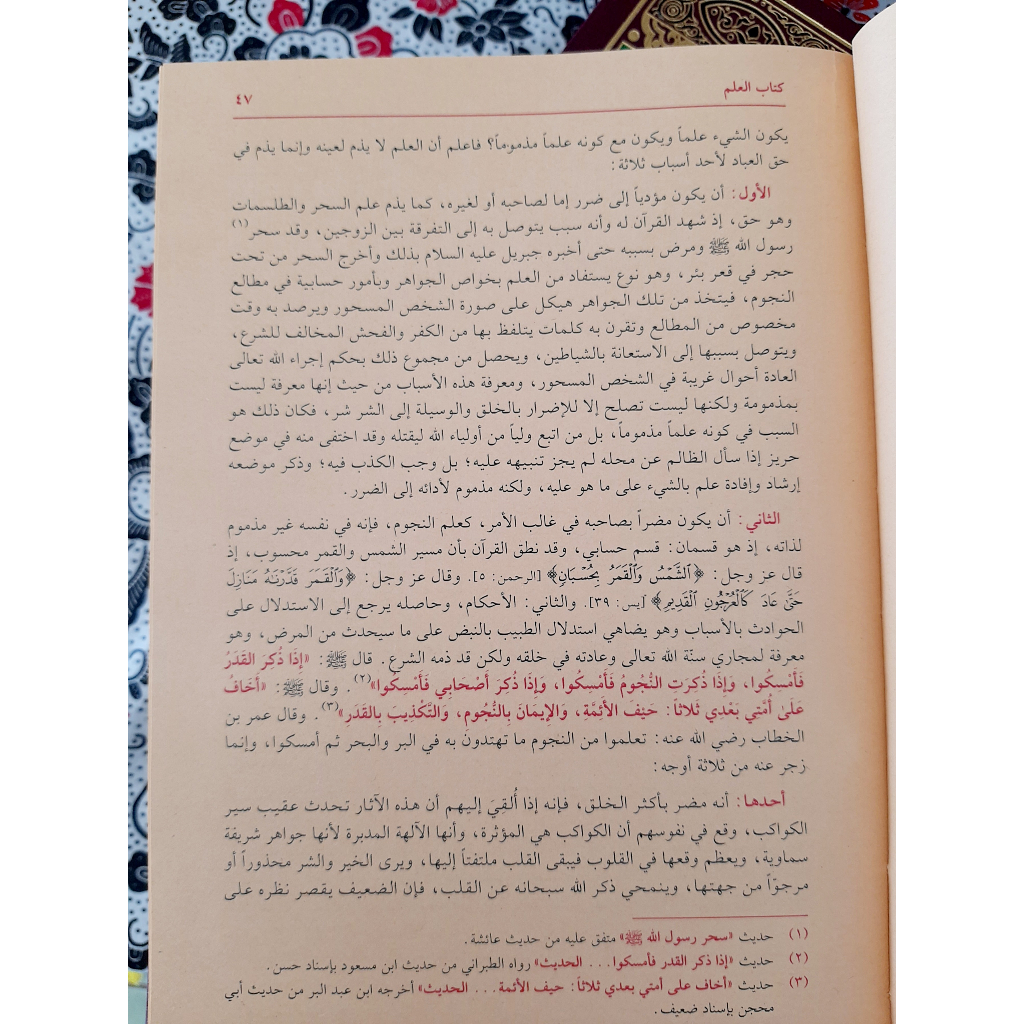 كتاب العلم
٤٧
يكون الشيء علماً ويكون مع كونه علماً مذموماً؟ فاعلم أن العلم لا يذم لعينه وإنما يذم في
حق العباد لأحد أسباب ثلاثة:
الأول: أن يكون مؤدياً إلى ضرر إما لصاحبه أو لغيره، كما يذم علم السحر والطلسمات
وهو حق، إذ شهد القرآن له وأنه سبب يتوصل به إلى التفرقة بين الزوجين، وقد سحر(١)
رسول الله ﷺ ومرض بسببه حتى أخبره جبريل عليه السلام بذلك وأخرج السحر من تحت
حجر في قعر بئر، وهو نوع يستفاد من العلم بخواص الجواهر وبأمور حسابية في مطالع
النجوم، فيتخذ من تلك الجواهر هيكل على صورة الشخص المسحور ويرصد به وقت
مخصوص من المطالع وتقرن به كلمات يتلفظ بها من الكفر والفحش المخالف للشرع،
ويتوصل بسببها إلى الاستعانة بالشياطين، ويحصل من مجموع ذلك بحكم إجراء الله تعالى
العادة أحوال غريبة في الشخص المسحور، ومعرفة هذه الأسباب من حيث إنها معرفة ليست
بمذمومة ولكنها ليست تصلح إلا للإضرار بالخلق والوسيلة إلى الشر شر، فكان ذلك هو
السبب في كونه علماً مذموماً، بل من اتبع ولياً من أولياء الله ليقتله وقد اختفى منه في موضع
حريز إذا سأل الظالم عن محله لم يجز تنبيهه عليه؛ بل وجب الكذب فيه؛ وذكر موضعه
إرشاد وإفادة علم بالشيء على ما هو عليه، ولكنه مذموم لأدائه إلى الضرر.
الثاني: أن يكون مضراً بصاحبه في غالب الأمر، كعلم النجوم، فإنه في نفسه غير مذموم
لذاته، إذ هو قسمان: قسم حسابي، وقد نطق القرآن بأن مسير الشمس والقمر محسوب، إذ
قال عز وجل: ﴿ٱلشَّمْسُ وَٱلْقَمَرُ بِحُسْبَانٍ﴾ [الرحمن: ٥]. وقال عز وجل: ﴿وَٱلْقَمَرَ قَدَّرْنَٰهُ مَنَازِلَ
حَتَّىٰ عَادَ كَٱلْعُرْجُونِ ٱلْقَدِيمِ﴾ [يس: ٣٩]. والثاني: الأحكام، وحاصله يرجع إلى الاستدلال على
الحوادث بالأسباب وهو يضاهي استدلال الطبيب بالنبض على ما سيحدث من المرض، وهو
معرفة لمجاري سنّة الله تعالى وعادته في خلقه ولكن قد ذمه الشرع. قال ﷺ: «إِذَا ذُكِرَ القَدَرُ
فَأَمْسِكُوا، وَإِذَا ذُكِرَتِ النُّجُومُ فَأَمْسِكُوا، وَإِذَا ذُكِرَ أَصْحَابِي فَأَمْسِكُوا»(٢). وقال ﷺ: «أَخَافُ
عَلَىٰ أُمَّتِي بَعْدِي ثَلاثاً: حَيْفَ الأَئِمَّةِ، وَالإِيمَانَ بِالنُّجُومِ، وَالتَّكْذِيبَ بِالقَدَرِ»(٣). وقال عمر بن
الخطاب رضي الله عنه: تعلموا من النجوم ما تهتدون به في البر والبحر ثم أمسكوا، وإنما
زجر عنه من ثلاثة أوجه:
أحدها: أنه مضر بأكثر الخلق، فإنه إذا أُلقِيَ إليهم أن هذه الآثار تحدث عقيب سير
الكواكب، وقع في نفوسهم أن الكواكب هي المؤثرة، وأنها الآلهة المدبرة لأنها جواهر شريفة
سماوية، ويعظم وقعها في القلوب فيبقى القلب ملتفتاً إليها، ويرى الخير والشر محذوراً أو
مرجوّاً من جهتها، وينمحي ذكر الله سبحانه عن القلب، فإن الضعيف يقصر نظره على
(١) حديث «سحر رسول الله ﷺ» متفق عليه من حديث عائشة.
(٢) حديث «إذا ذكر القدر فأمسكوا... الحديث» رواه الطبراني من حديث ابن مسعود بإسناد حسن.
(٣) حديث «أخاف على أمتي بعدي ثلاثاً: حيف الأئمة... الحديث» أخرجه ابن عبد البر من حديث أبي
محجن بإسناد ضعيف.